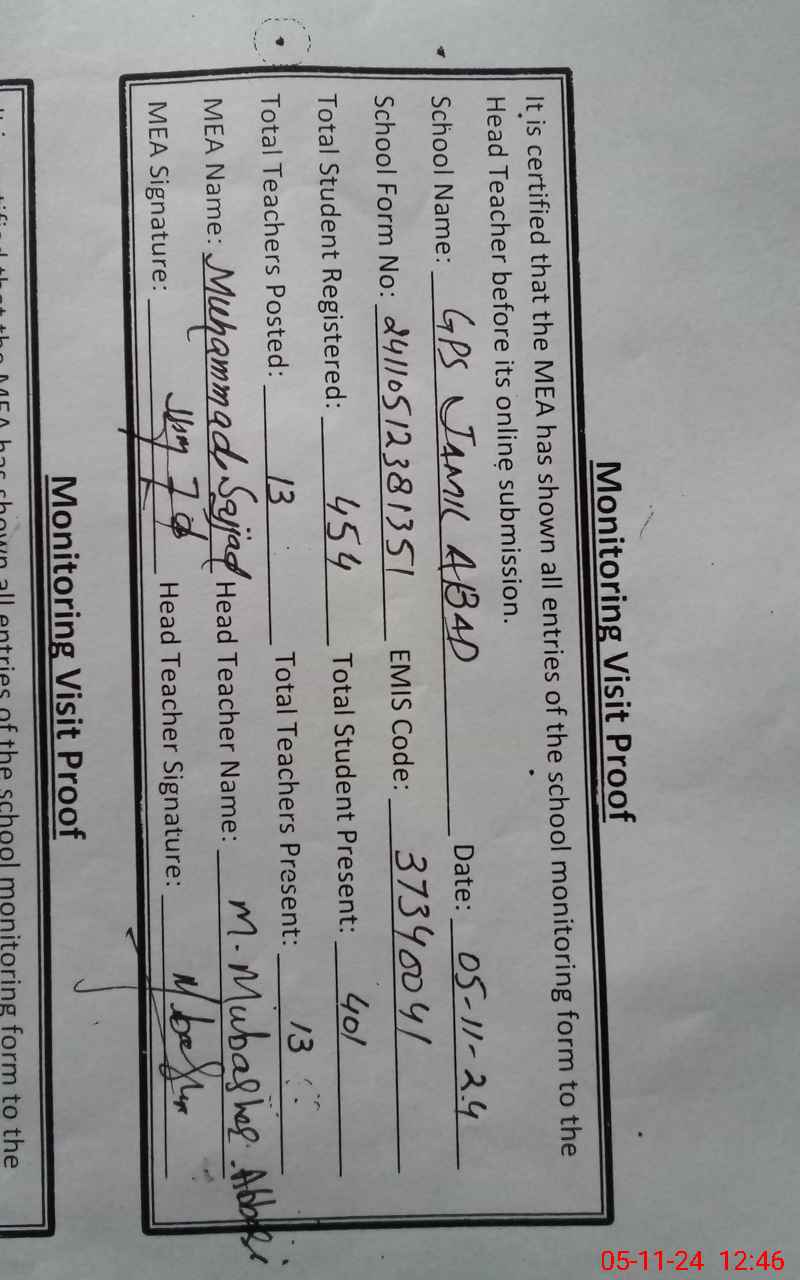 Monitoring Visit Proof
It is certified that the MEA has shown all entries of the school monitoring form to the
Head Teacher before its online submission.
School Name: GPS JAMIL ABAD Date: 05-11-24
School Form No: 24110512381351 EMIS Code: 37340041
Total Student Registered: 454 Total Student Present: 401
Total Teachers Posted: 13 Total Teachers Present: 13
MEA Name: Muhammad Sajjad Head Teacher Name: M. Mubasher Abbasi
MEA Signature: Head Teacher Signature:
Monitoring Visit Proof
that the MEA has shown all entries of the school monitoring form to the
05-11-24 12:46